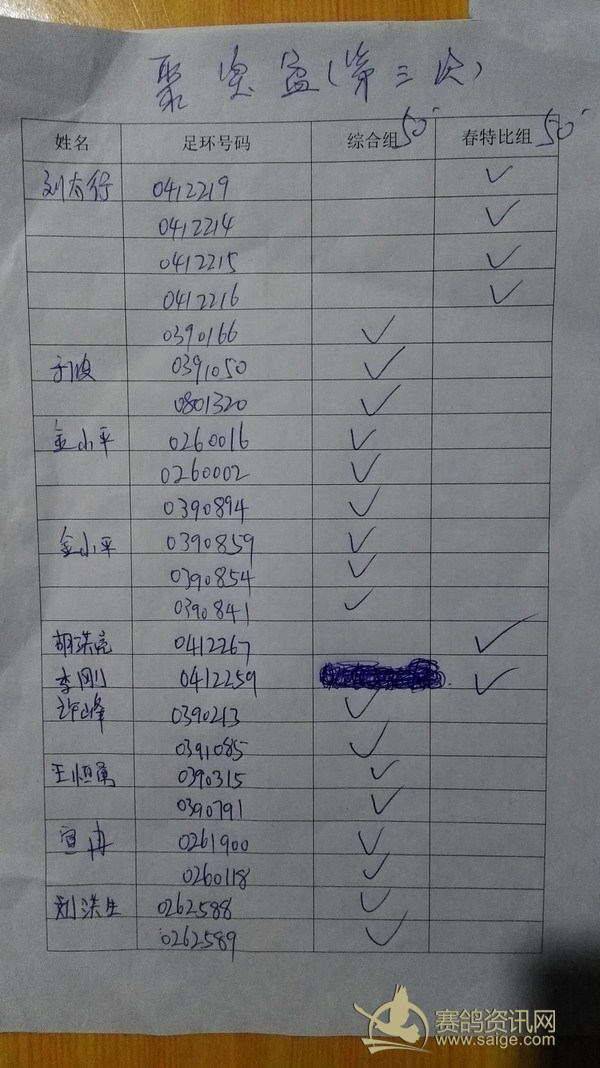 聚奖盃(第三次)
姓名 足环号码 综合组 50 春特比组 50
刘有行 0412219 ✓
0412214 ✓
0412215 ✓
0412216 ✓
0390166 ✓
0391050 ✓
0801320 ✓
金小平 0260016 ✓
0260002 ✓
0390894 ✓
金小平 0390859 ✓
0390854 ✓
0390841 ✓
胡洪亮 0412267 ✓
李刚 0412259 ✓
许峰 0390213 ✓
0391085 ✓
王恒勇 0390315 ✓
0390791 ✓
宣冉 0261900 ✓
0260118 ✓
刘洪生 0262588 ✓
0262589 ✓
赛鸽资讯网
www.saige.com